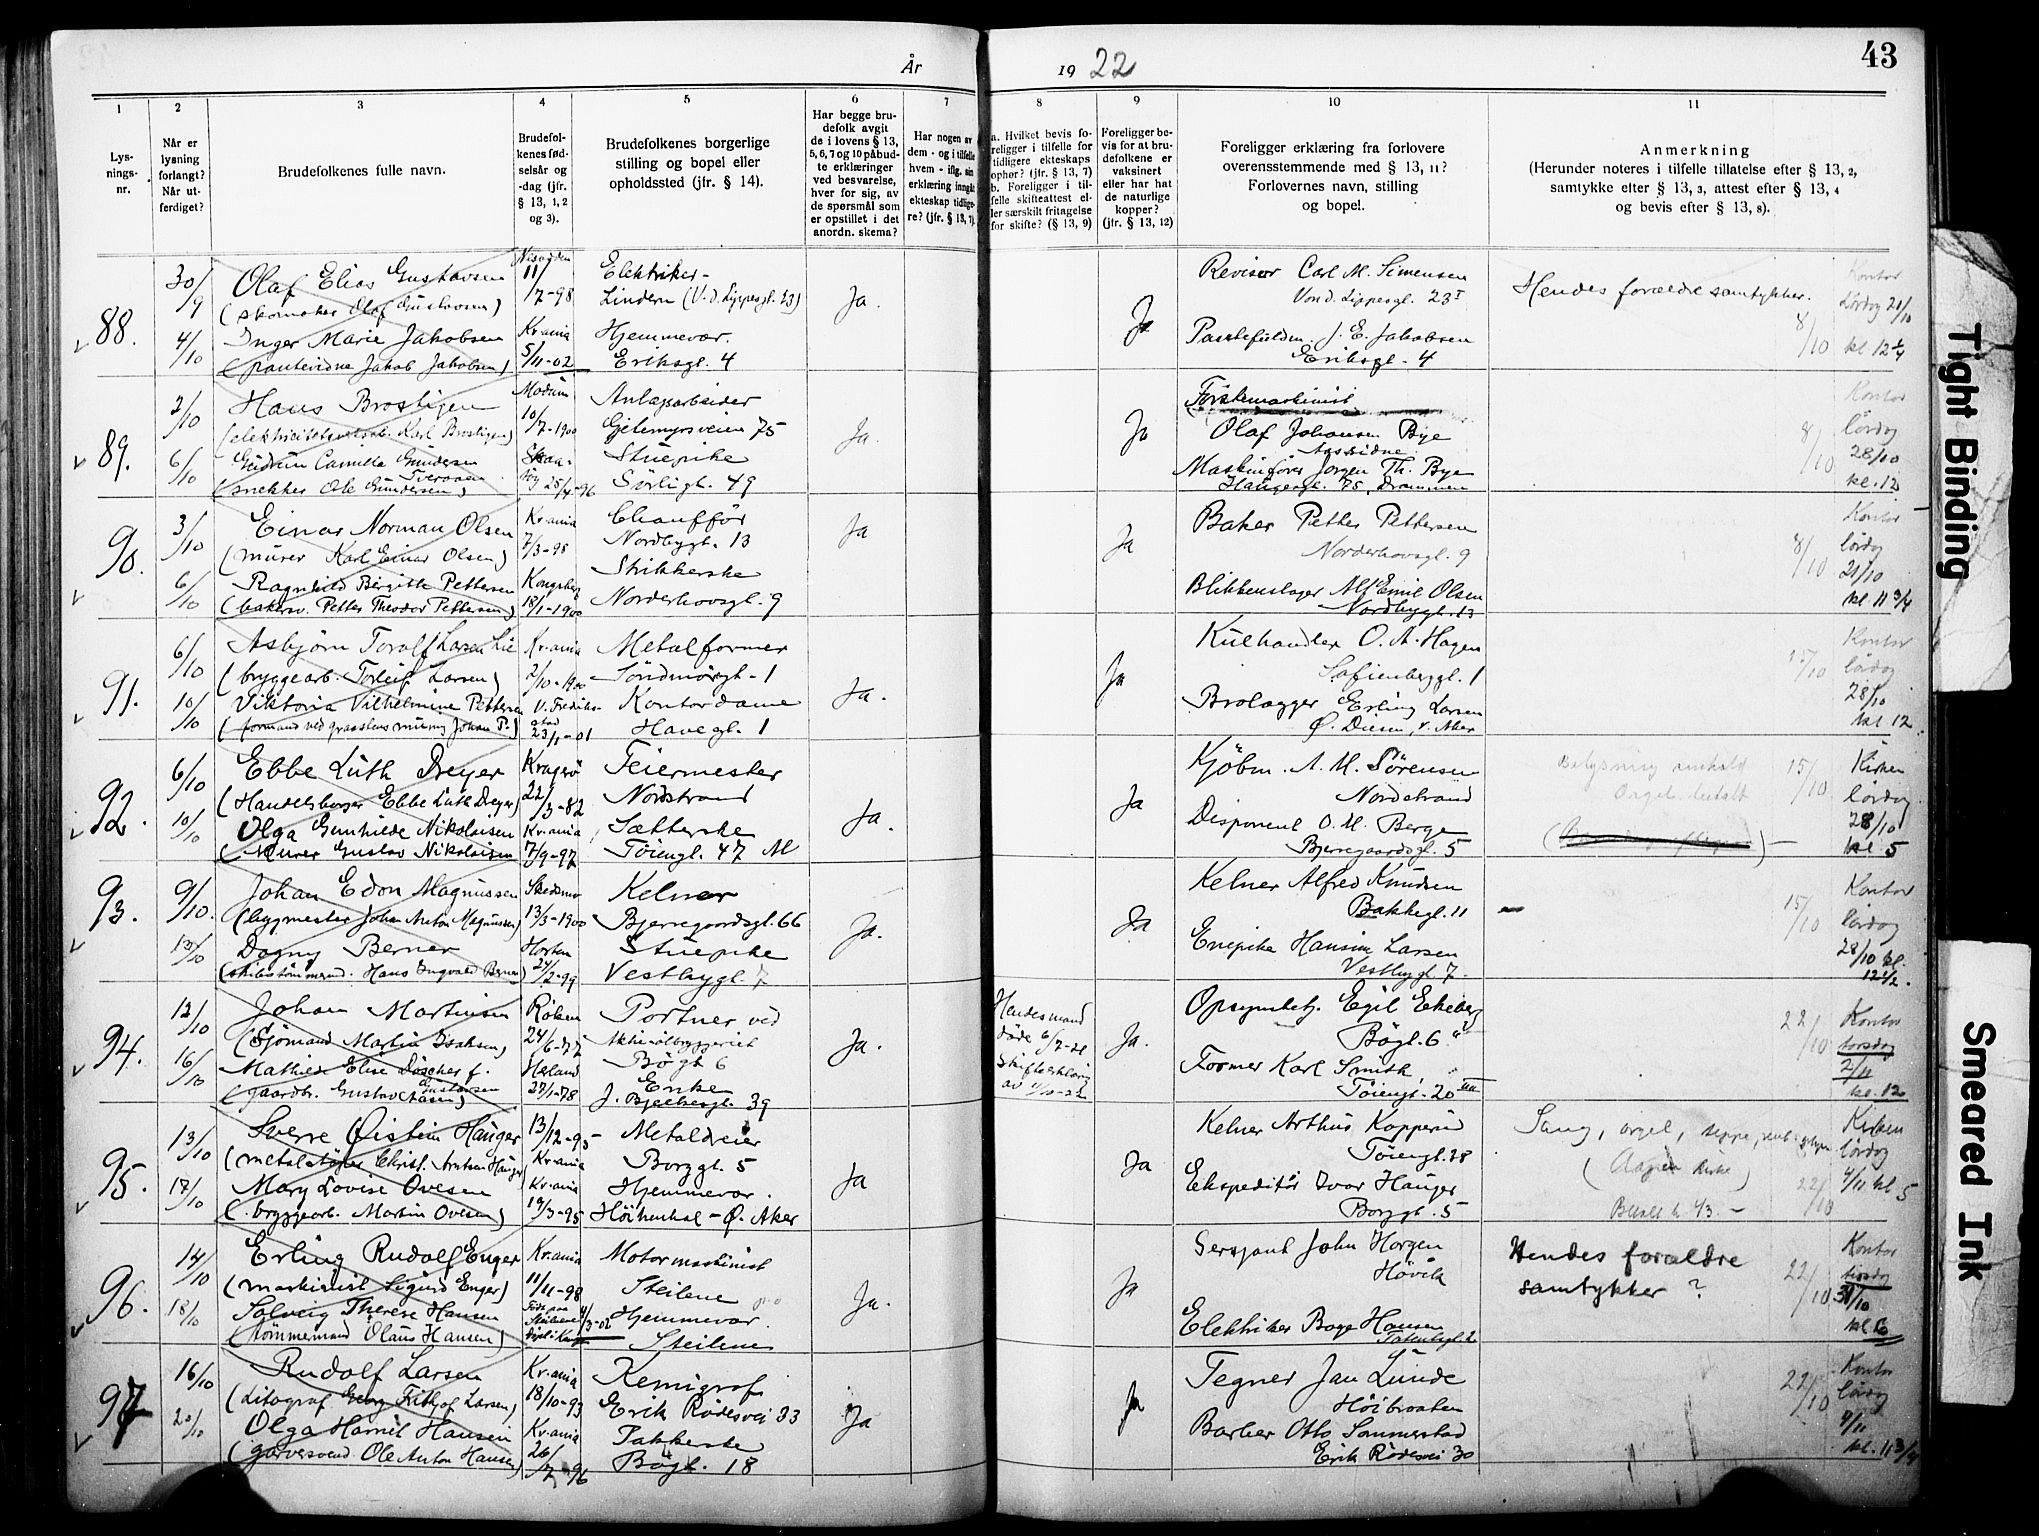 År 1922
43
1
2
3
4
5
6
7
8
9
10
11
Lys-
nings-
nr.
Når er
lysning
forlangt?
Når ut-
ferdiget?
Brudefolkenes fulle navn.
Brudefol-
kenes fød-
selsår og
-dag (jfr.
§ 13, 1, 2
og 3).
Brudefolkenes borgerlige
stilling og bopel eller
opholdssted (jfr. § 14).
Har begge bru-
defolk avgit
de i lovens § 13,
5, 6, 7 og 10 påbud-
te erklæringer
ved besvarelse,
hver for sig, av
de spørsmål som
er opstillet i det
anordn. skema?
Har nogen av
dem - og i tilfelle
hvem - iflg. sin
erklæring inngåt
ekteskap tidlige-
re? (jfr. § 13, 7)
a. Hvilket bevis fo-
religger i tilfelle for
tidligere ekteskaps
ophør? (jfr. § 13, 7)
b. Foreligger i til-
felle skifteattest el-
ler særskilt fritagelse
for skifte? (§ 13, 9)
Foreligger be-
vis for at bru-
defolkene er
vaksinert
eller har hat
de naturlige
kopper?
(jfr. § 13, 12)
Foreligger erklæring fra forlovere
overensstemmende med § 13, 11?
Forlovernes navn, stilling
og bopel.
Anmerkning
(Herunder noteres i tilfelle tillatelse efter § 13, 2,
samtykke efter § 13, 3, attest efter § 13, 4
og bevis efter § 13, 8).
88.
30/9
4/10
Olaf Elias Gustavsen
(skomaker Olaf Gustavsen)
Inger Marie Jakobsen
(pantevidne Jakob Jakobsen)
Nesodden
11/7-98
Kr.ania
5/11-02
Elektriker-
Lindern (V.d. Lippesgt. 23)
Hjemmevær.
Eriksgt. 4
Ja.
Ja
Revisor Carl M. Simensen
Von d. Lippesgt. 23 I
J. E. Jakobsen
Eriksgt. 4
Hendes forældre samtykker.
8/10
Kontor
Lørdag 21/10
kl 12 1/4
89.
2/10
6/10
Hans Brostigen
Karl Brostigen)
Gudrun Camilla Gundersen
Tveraaen
(snekker Ole Gundersen)
Modum
10/7-1900
25/4-96
Anlægsarbeider
Gjetemyrsveien 75
Stuepike
Sörligt. 49
Ja.
Ja
Förstemaskinist
Olaf Johansen Bye
Maskinfører Jørgen Th. Bye
Haugesgt. 75, Drammen
8/10
Kontor
lördag
28/10
kl. 12
90.
3/10
6/10
Einar Norman Olsen
(murer Karl Einar Olsen)
Ragnhild Birgitte Pettersen
(bakersv. Petter Theodor Pettersen)
Kr.ania
7/3-98
Kongsberg
18/1-1900
Chauffør
Nordbygt. 13
Strikkerske
Norderhovsgt. 9
Ja
Ja
Baker Petter Pettersen
Norderhovsgt. 9
Blikkenslager Alf Emil Olsen
Nordbygt. 13
8/10
Kontor
lördag
21/10
kl 11 3/4
91.
6/10
10/10
Asbjørn Toralf Larsen Lie
(bryggearb. Torleif Larsen)
Viktoria Vilhelmine Pettersen
(formand ved graastens muring Johan P.)
Kr.ania
2/10-1900
V. Fredrik-
stad
23/1-01
Metalformer
Söndmörgt. 1
Kontordame
Havegt. 1
Ja.
Ja
Kulhandler O. A. Hagen
Sofienberggt. 1
Brolægger Erling Larsen
Ø. Disen, v. Aker
15/10
Kontor
lördag
28/10
kl 12.
92.
6/10
10/10
Ebbe Luth Dreyer
(Handelsborger Ebbe Luth Dreyer)
Olga Gunhilde Nikolaisen
(Murer Gustav Nikolaisen
Kragerö
22/3-82
Kr.ania
7/9-97
Feiermester
Nordstrand
Sætterske
Töiengt. 47 M
Ja.
Ja
Kjöbm. A. M. Sörensen
Nordstrand
Disponent O. M. Berge
Bjerregaardsgt. 5
Belysning
Orgel betalt
15/10
Kirken
lördag
28/10
kl 5
93.
9/10.
13/10
Johan Edon Magnussen
(bygmester Johan Anton Magnussen)
Dagny Berner
(skibstömmermd. Hans Ingvald Berner)
Skedsmo
13/3-1900
Horten
24/2-99
Kelner
Bjerregaardsgt. 66
Stuepike
Vestbygt. 7
Ja.
Ja
Kelner Alfred Knudsen
Bakkegt. 11
Enepike Hansine Larsen
Vestbygt. 7.
15/10
Kontor
lördag
28/10 kl.
12 1/2.
94.
12/10
16/10
Johan Martinsen
(Sjömand Martin Isaksen)
Mathilde Elise Döscher f.
Gustavsen
(gaardbr. Gustav Aasen)
Röken
24/6-77
Hurland
27/1-78
Portner ved
Aktieølbryggeriet
Bögt 6
Enke
J. Bjelkesgt. 39
Ja.
Hendes mand
döde 6/7-21
Skifteerklæring
av 4/10-22
Ja.
Opsynsbetj. Egil Ekeberg
Bögt. 6
Former Karl Smith
Töiengt. 20 III
22/10
Kontor
torsdag
2/11
kl. 12
95.
13/10
17/10
Sverre Øistein Hauger
(metalstöper Christ. Anton Hauger)
Mary Lovise Ovesen
(bryggearb. Martin Ovesen)
13/12-95
Kr.ania
Kr.ania
19/3-95
Metaldreier
Borggt. 5
Hjemmevær.
Höienhal - Ø. Aker
Ja
Ja
Kelner Arthur Kopperud
Töiengt. 28
Ekspeditör Ivar Hauger
Borggt. 5
Sang, orgel, teppe,
22/10
Kirken
lördag
4/11 kl 5
96.
14/10
18/10
Erling Rudolf Enger
(maskinist Sigurd Enger)
Solveig Therese Hansen
(tömmermand Olaus Hansen)
Kr.ania
11/11-98
4/3-02
Motormaskinist
Steilene
Hjemmevær.
Steilene
Ja.
Ja
Sersjant John Horgen
Hövik
Elektriker Boye Hansen
22/10
Hendes foreldre
samtykker?
Kontor
tirsdag
31/10
kl 6
97
16/10
20/10
Rudolf Larsen
(Litograf Georg Fritjof Larsen)
Olga Harriet Hansen
(garversvend Ole Anton Hansen)
Kr.ania
18/10-93
Kr.ania
26/7-96
Kemigraf
Erik Rödesvei 33
Pakkerske
Bögt. 18
Ja
Ja
Tegner Jan Lunde
Höibraaten
Barber Otto Sommerstad
Erik Rödesvei 30
22/10
Kontor
lördag
4/11
kl. 11 3/4
Tight Binding
Smeared Ink